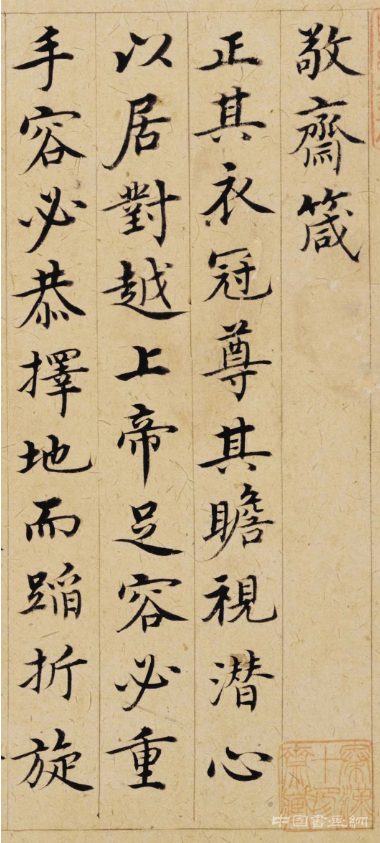 敬齋箴
正其衣冠尊其瞻視潜心
以居對越上帝足容必重
手容必恭擇地而蹈折旋
中国書画網